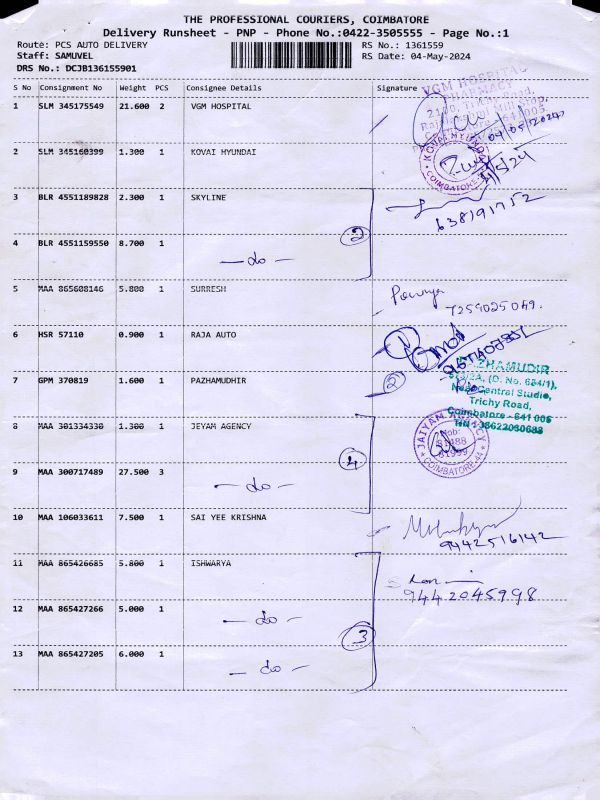 THE PROFESSIONAL COURIERS, COIMBATORE
Delivery Runsheet - PNP - Phone No.:0422-3505555 - Page No.:1
Route: PCS AUTO DELIVERY
RS No.: 1361559
Staff: SAMUVEL
RS Date: 04-May-2024
DRS No.: DCJB136155901
S No Consignment No Weight PCS Consignee Details Signature
1 SLM 345175549 21.600 2 VGM HOSPITAL
VGM HOSPITAL
PHARMACY
2 SLM 345160399 1.300 1 KOVAI HYUNDAI
KOVAI HYUNDAI
COIMBATORE
3 BLR 4551189828 2.300 1 SKYLINE
638191752
4 BLR 4551159550 8.700 1 - do - 2
5 MAA 865608146 5.800 1 SURRESH
7259025049.
6 HSR 57110 0.900 1 RAJA AUTO
7 GPM 370819 1.600 1 PAZHAMUDHIR 2
PAZHAMUDIR
(D. No. 684/1),
Near Central Studio,
Trichy Road,
Coimbatore - 641 005
8 MAA 301334330 1.300 1 JEYAM AGENCY
JAIYAM AGENCY
Mob:
COIMBATORE-44
9 MAA 300717489 27.500 3 - do - 4
10 MAA 106033611 7.500 1 SAI YEE KRISHNA
9442516142
11 MAA 865426685 5.800 1 ISHWARYA
9442045998
12 MAA 865427266 5.000 1 - do - 3
13 MAA 865427205 6.000 1 - do -